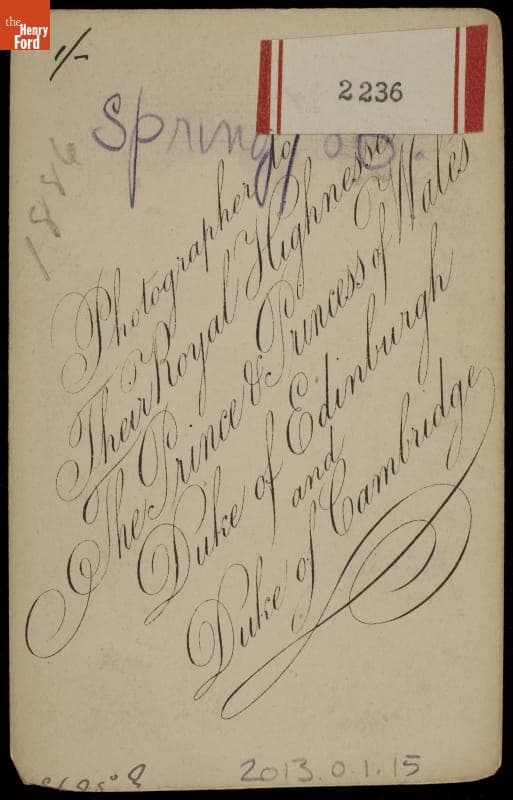 the
Henry
Ford
1/-
2236
Spring
1886
Photographer to
Their Royal Highnesses
The Prince & Princess of Wales
Duke of Edinburgh
and
Duke of Cambridge
2013.0.1.15